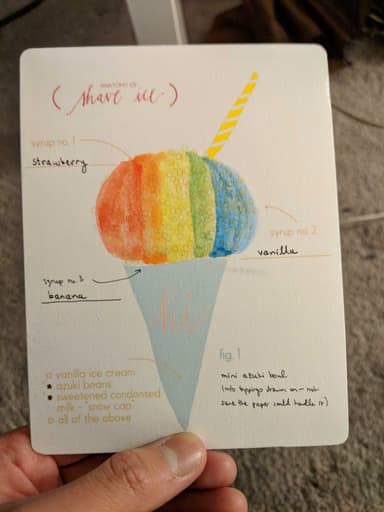 ANATOMY OF
( shave ice )
syrup no. 1
strawberry
syrup no. 2
vanilla
syrup no. 3
banana
hi
vanilla ice cream
azuki beans
sweetened condensed
milk - "snow cap"
all of the above
fig. 1
mini azuki bowl
(no toppings drawn on - not
sure the paper could handle it)